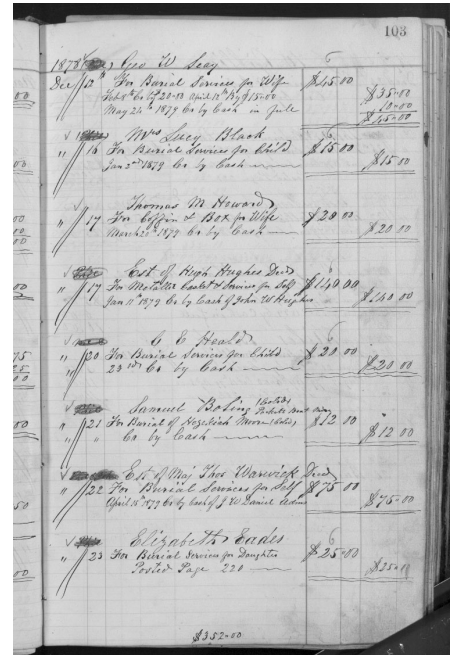 103
1878 Geo W Seay
Dec 12th For Burial Services for Wife $45.00
Feb 8th Cr by 20-00 April 12th By $15-00 $35-00
May 24th 1879 Cash in full 10-00
$45-00
Mrs Lucy Black
" 16 For Burial Services for Child $15.00
Jan 2nd 1879 Cr by Cash $15.00
Thomas M Howard
" 17 For Coffin & Box for Wife $20 00
March 21st 1879 Cr by Cash $20.00
Est of Hugh Hughes Decd
" 17 For Metallic Casket & Services for Self $140 00
Jan 11th 1879 Cr by Cash of John W Hughes $140 00
C E Heald
" 20 For Burial Services for Child $20 00
23rd Cr by Cash $20 00
Samuel Boling (Cold)
" 21 For Burial of Hezekiah Moore (Cold) $12 00
" " Cr by Cash $12 00
Est of Maj Thos Warwick Decd
" 22 For Burial Services for Self $75 00
April 15th 1879 Cr by Cash of J W Daniel Adm $75-00
Elizabeth Eades
" 23 For Burial Services for Daughter $25-00
Posted Page 220
$352-00